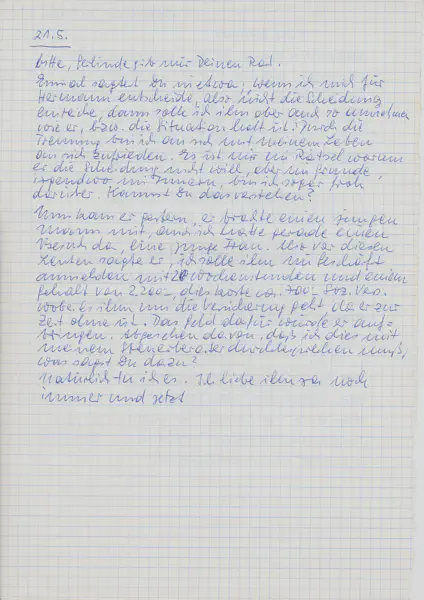 21.5.
Bitte, Gerlinde gib mir Deinen Rat.
Einmal sagtest Du mir etwa, wenn ich mich für
Hermann entscheide, also nicht die Scheidung
einreiche, dann solle ich ihn aber auch so annehmen
wie er, bzw. die Situation halt ist. Durch die
Trennung bin ich an sich mit meinem Leben
an sich zufrieden. Es ist mir ein Rätsel warum
er die Scheidung nicht will, aber im Grunde,
irgendwo im Inneren, bin ich sogar froh
darüber. Kannst Du das verstehen?
Nun kam er gestern, er brachte einen jungen
Mann mit, und ich hatte gerade einen
Besuch da, eine junge Frau. Also vor diesen
Leuten sagte er, ich solle ihn im Geschäft
anmelden mit 20 Wochenstunden und einem
Gehalt von 2.200.-, dies koste ca. 700.- Soz. Vers.
wobei es ihm um die Versicherung geht, da er zur
Zeit ohne ist. Das Geld dafür würde er auf-
bringen. Abgesehen davon, daß ich dies mit
meinem Steuerberater durchbesprechen muß,
was sagst Du dazu?
Natürlich tu ich es. Ich liebe ihn ja noch
immer und jetzt